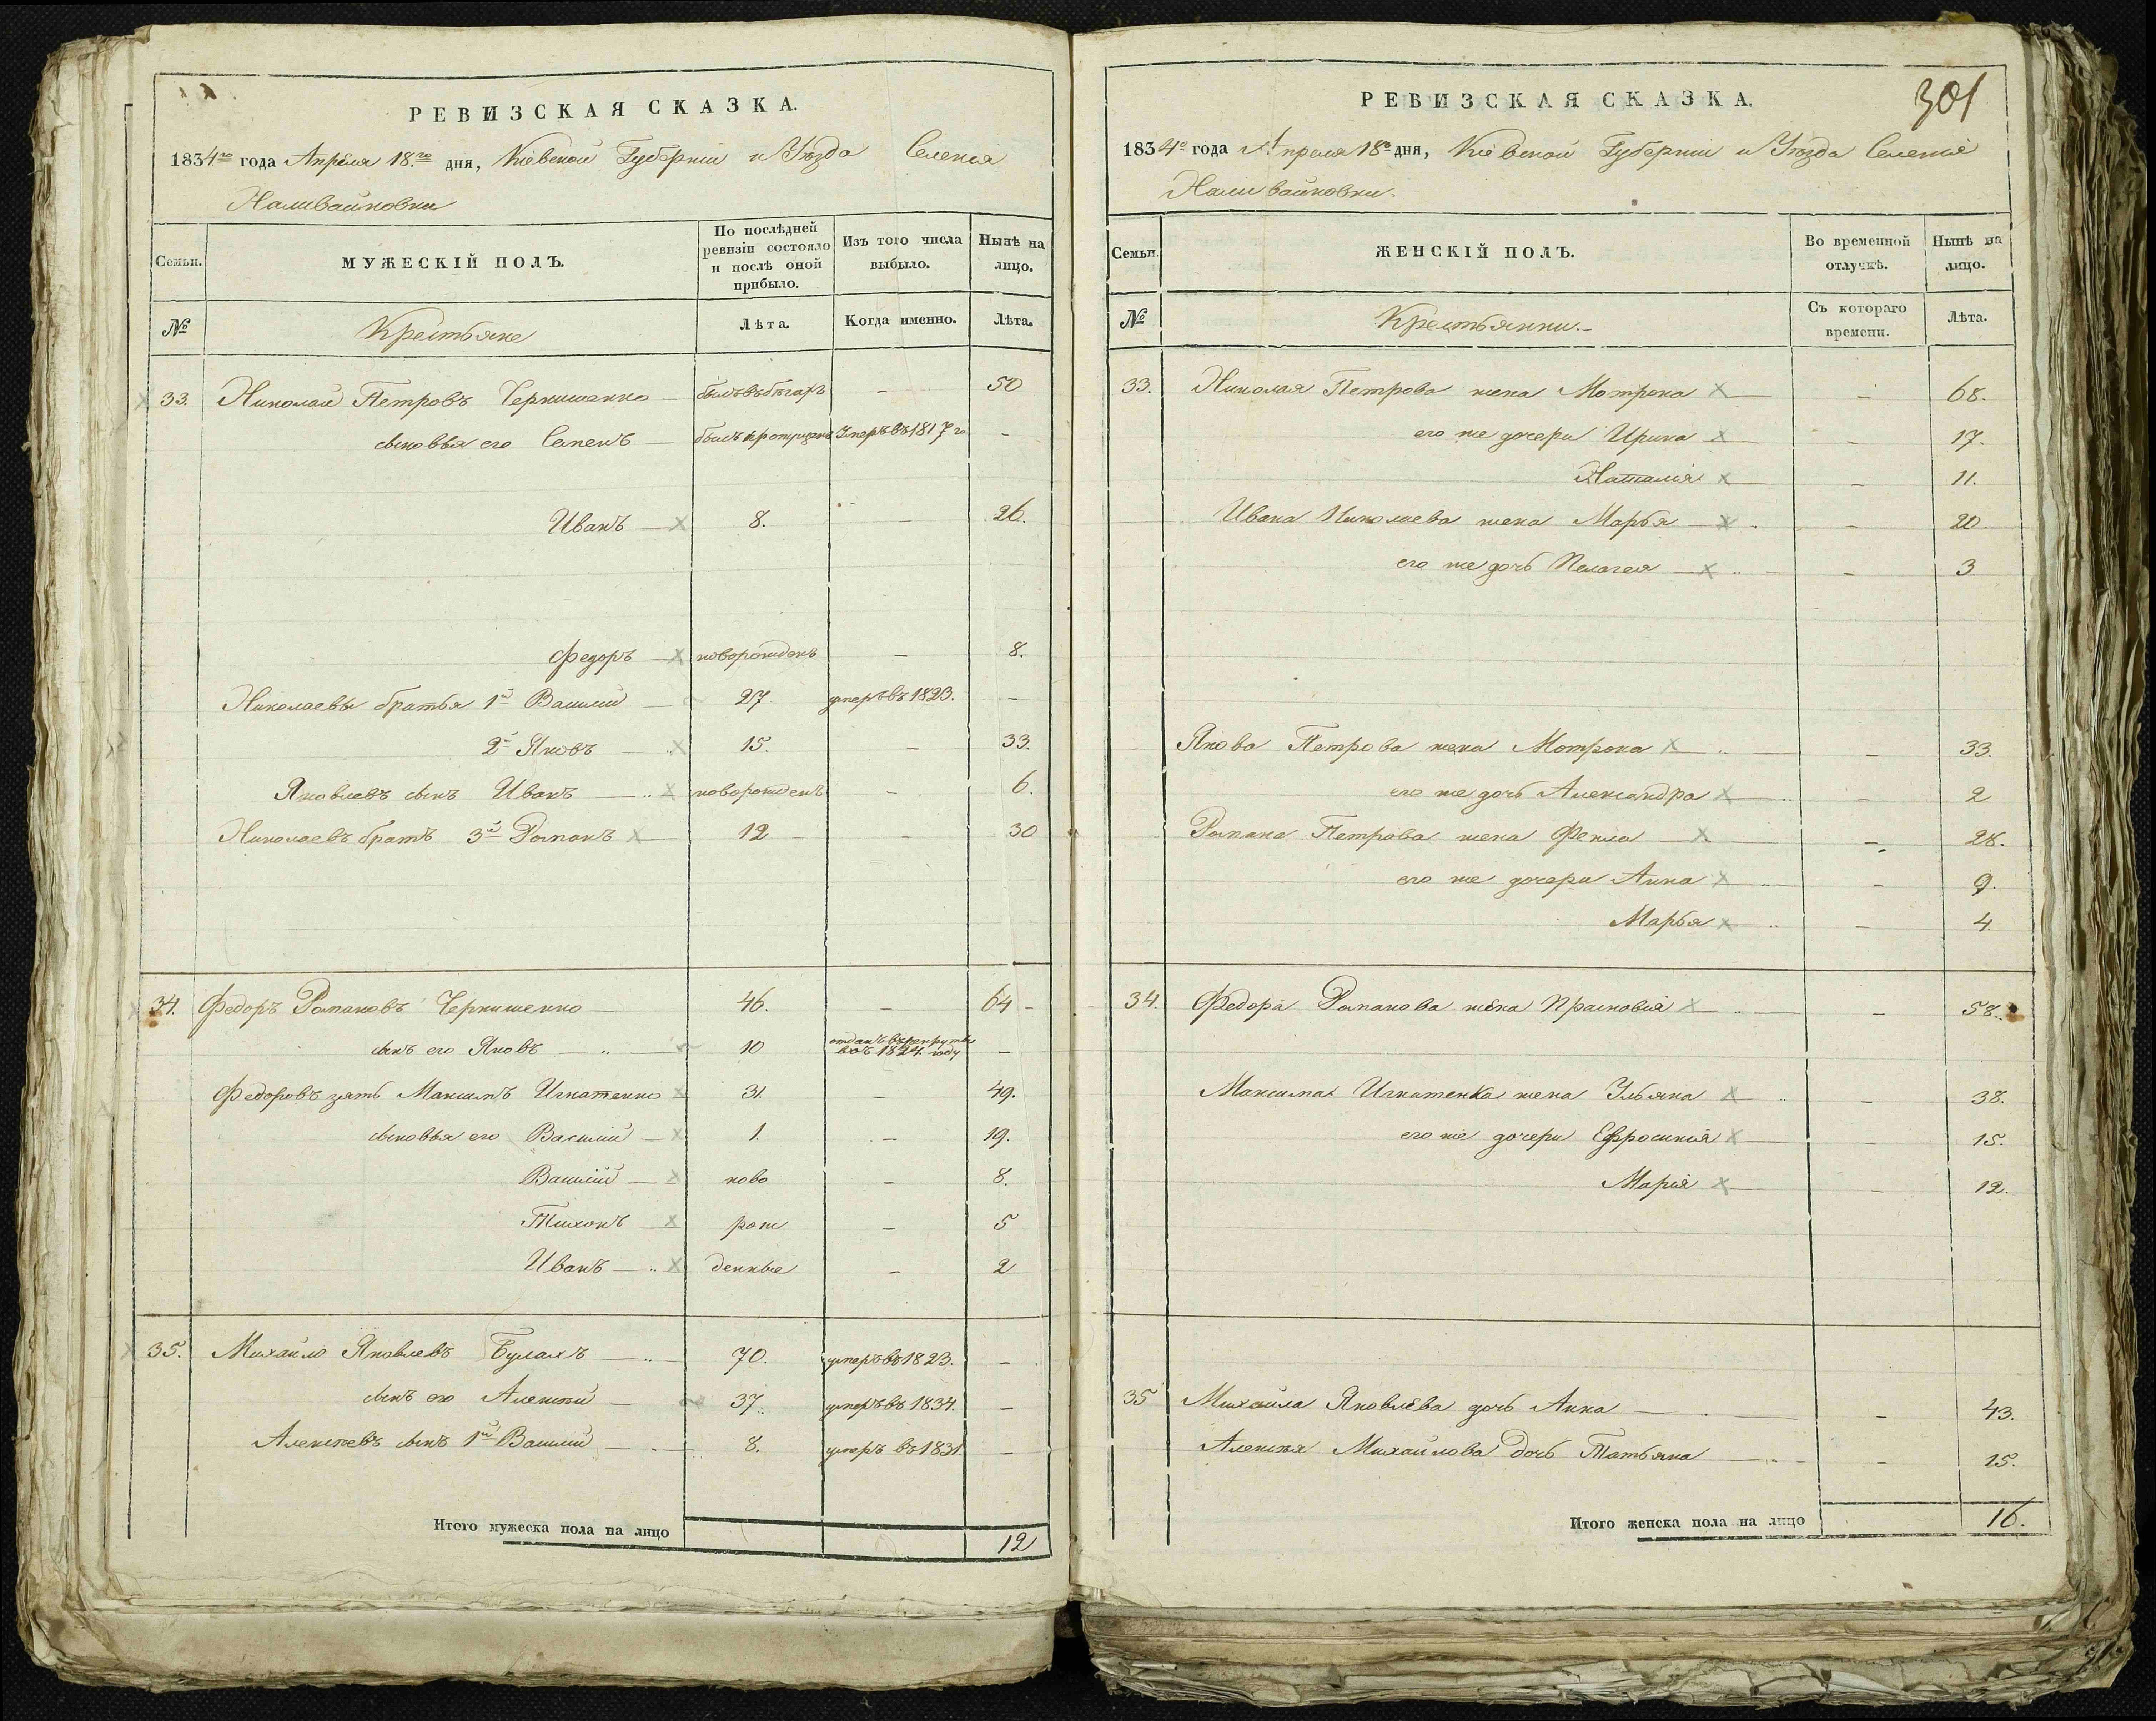 РЕВИЗСКАЯ СКАЗКА.
1834го года Апреля 18.го дня, Кіевской Губерніи и Уѣзда Селенія
Наливайковки
Семьи. МУЖЕСКІЙ ПОЛЪ. По послѣдней ревизіи состояло и послѣ оной прибыло. Изъ того числа выбыло. Нынѣ на лицо.
№ Крестьяне Лѣта. Когда именно. Лѣта.
33. Николай Петровъ Чернишенко былъ въ бѣгахъ – 50
сыновья его Семенъ былъ пропущенъ Умеръ въ 1817 го –
Иванъ 8. – 26.
Федоръ новорожденъ – 8.
Николаевы братья 1й Василий 27 умеръ въ 1823. –
2й Яковъ 15. – 33.
Яковлевъ сынъ Иванъ новорожденъ – 6.
Николаевъ братъ 3й Романъ 12 – 30
34. Федоръ Романовъ Чернишенко 46. – 64
сынъ его Яковъ 10 отданъ въ рекруты въ 1824. году –
Федоровъ зять Максимъ Игнатенко 31. – 49.
сыновья его Василий 1. – 19.
Василій ново – 8.
Тихонъ рож – 5
Иванъ денные – 2
35. Михайло Яковлевъ Булахъ 70. умеръ въ 1823. –
сынъ его Алексѣй 37. умеръ въ 1834. –
Алексѣевъ сынъ 1й Василий 8. умеръ въ 1831 –
Итого мужеска пола на лицо 12
301
РЕВИЗСКАЯ СКАЗКА.
1834о года Апреля 18о дня, Кіевской Губерніи и Уѣзда Селеніе
Наливайковки.
Семьи. ЖЕНСКІЙ ПОЛЪ. Во временной отлучкѣ. Нынѣ на лицо.
№ Крестьянки. Съ котораго времени. Лѣта.
33. Николая Петрова жена Мотрона – 68.
его же дочери Ирина – 17.
Наталія – 11.
Ивана Николаева жена Марья – 20
его же дочь Пелагея – 3
Якова Петрова жена Мотрона – 33.
его же дочь Александра – 2
Романа Петрова жена Фекла – 28.
его же дочери Анна – 9.
Марья – 4.
34. Федора Романова жена Прасковія – 58.
Максима Игнатенка жена Ульяна – 38.
его же дочери Ефросинія – 15.
Марія – 12.
35 Михайла Яковлева дочь Анна – 43.
Алексѣя Михайлова дочь Татьяна – 15.
Итого женска пола на лицо 16.